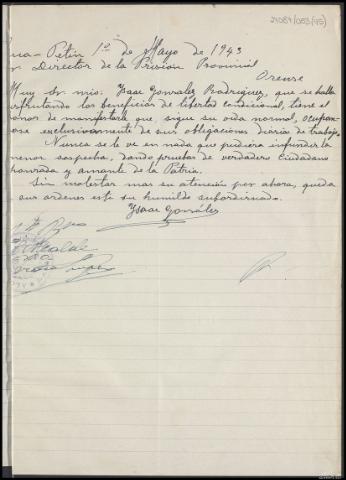 Petin 1º de Mayo de 1943
Director de la Prision Provincial
Orense
Muy Sr. mio: Isaac Gonzalez Rodriguez, que se halla
disfrutando los beneficios de libertad condicional, tiene el
onor de manifestarle que, sigue su vida normal, ocupan-
ose exclusivamente de sus obligaciones diarias de trabajo.
Nunca se le ve en nada que pudiera infundir la
menor sospecha, dando pruebas de verdadero ciudadano
honrada y amante de la Patria.
Sin molestar mas su atención por ahora, queda
sus ordenes este su humilde subordinado.
Isaac González
Bno
Alcalde